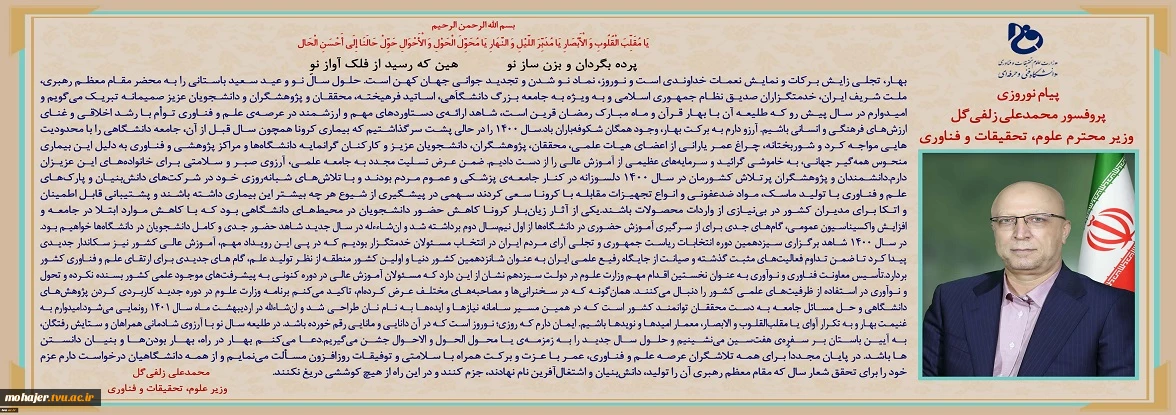 بسم الله الرحمن الرحیم
یَا مُقَلِّبَ الْقُلُوبِ وَ الْأَبْصَارِ یَا مُدَبِّرَ اللَّیْلِ وَ النَّهَارِ یَا مُحَوِّلَ الْحَوْلِ وَ الْأَحْوَالِ حَوِّلْ حَالَنَا إِلَى أَحْسَنِ الْحَالِ
پرده بگردان و بزن ساز نو هین که رسید از فلک آواز نو
بهار، تجلی زایش برکات و نمایش نعمات خداوندی است و نوروز، نماد نو شدن و تجدید جوانی جهان کهن است. حلول سال نو و عید سعید باستانی را به محضر مقام معظم رهبری،
ملت شریف ایران، خدمتگزاران صدیق نظام جمهوری اسلامی و به ویژه به جامعه بزرگ دانشگاهی، اساتید فرهیخته، محققان و پژوهشگران و دانشجویان عزیز صمیمانه تبریک می‌گویم و
امیدوارم در سال پیش رو که طلیعه آن با بهار قرآن و ماه مبارک رمضان قرین است، شاهد ارائه‌ی دستاوردهای مهم و ارزشمند در عرصه‌ی علم و فناوری توأم با رشد اخلاقی و غنای
ارزش‌های فرهنگی و انسانی باشیم. آرزو دارم به برکت بهار، وجود همگان شکوفه‌باران باد.سال ۱۴۰۰ را در حالی پشت سرگذاشتیم که بیماری کرونا همچون سال قبل از آن، جامعه دانشگاهی را با محدودیت
هایی مواجه کرد و شوربختانه، چراغ عمر یارانی از اعضای هیات علمی، محققان، پژوهشگران، دانشجویان عزیز و کارکنان گرانمایه دانشگاه‌ها و مراکز پژوهشی و فناوری به دلیل این بیماری
منحوس همه‌گیر جهانی، به خاموشی گرائید و سرمایه‌های عظیمی از آموزش عالی را از دست دادیم. ضمن عرض تسلیت مجدد به جامعه علمی، آرزوی صبر و سلامتی برای خانواده‌های این عزیزان
دارم.دانشمندان و پژوهشگران پرتلاش کشورمان در سال ۱۴۰۰ دلسوزانه در کنار جامعه‌ی پزشکی و عموم مردم بودند و با تلاش‌های شبانه‌روزی خود در شرکت‌های دانش‌بنیان و پارک‌های
علم و فناوری با تولید ماسک، مواد ضدعفونی و انواع تجهیزات مقابله با کرونا سعی کردند سهمی در پیشگیری از شیوع هر چه بیشتر این بیماری داشته باشند و پشتیبانی قابل اطمینان
و اتکا برای مدیران کشور در بی‌نیازی از واردات محصولات باشند.یکی از آثار زیان‌بار کرونا کاهش حضور دانشجویان در محیط‌های دانشگاهی بود که با کاهش موارد ابتلا در جامعه و
افزایش واکسیناسیون عمومی، گام‌های جدی برای از سرگیری آموزش حضوری در دانشگاه‌ها از اول نیم‌سال دوم برداشته شد و ان‌شاءالله در سال جدید شاهد حضور جدی و کامل دانشجویان در دانشگاه‌ها خواهیم بود.
در سال ۱۴۰۰ شاهد برگزاری سیزدهمین دوره انتخابات ریاست جمهوری و تجلی آرای مردم ایران در انتخاب مسئولان خدمتگزار بودیم که در پی این رویداد مهم، آموزش عالی کشور نیز سکاندار جدیدی
پیدا کرد تا ضمن تداوم فعالیت‌های مثبت گذشته و صیانت از جایگاه رفیع علمی ایران به عنوان شانزدهمین کشور دنیا و اولین کشور منطقه از نظر تولید علم، گام های جدیدی برای ارتقای علم و فناوری کشور
بردارد.تأسیس معاونت فناوری و نوآوری به عنوان نخستین اقدام مهم وزارت علوم در دولت سیزدهم نشان از این دارد که مسئولان آموزش عالی در دوره کنونی به پیشرفت‌های موجود علمی کشور بسنده نکرده و تحول
و نوآوری در استفاده از ظرفیت‌های علمی کشور را دنبال می‌کنند. همان‌گونه که در سخنرانی‌ها و مصاحبه‌های مختلف عرض کرده‌ام، تاکید می‌کنم برنامه وزارت علوم در دوره جدید کاربردی کردن پژوهش‌های
دانشگاهی و حل مسائل جامعه به دست محققان توانمند کشور است که در همین مسیر سامانه نیازها و ایده‌ها به نام نان طراحی شد و ان‌شاالله در اردیبهشت ماه سال ۱۴۰۱ رونمایی می‌شود.امیدوارم به
غنیمت بهار و به تکرار آوای یا مقلب‌القلوب و الابصار، معمار امیدها و نویدها باشیم. ایمان دارم که روزی؛ نوروز است که در آن دانایی و مانایی رقم خورده باشد. در طلیعه سال نو با آرزوی شادمانی همراهان و ستایش رفتگان،
به آیین باستان بر سفره‌ی هفت‌سین می‌نشینیم و حلول سال جدید را به زمزمه‌ی یا محول الحول و الاحوال جشن می‌گیریم.دعا می‌کنم بهار در راه، بهار بودن‌ها و بنیان دانستن
ها باشد. در پایان مجددا برای همه تلاشگران عرصه علم و فناوری، عمر با عزت و برکت همراه با سلامتی و توفیقات روزافزون مسألت می‌نمایم و از همه دانشگاهیان درخواست دارم عزم
خود را برای تحقق شعار سال که مقام معظم رهبری آن را تولید، دانش‌بنیان و اشتغال‌آفرین نام نهادند، جزم کنند و در این راه از هیچ کوششی دریغ نکنند.
محمدعلی زلفی‌گل
وزیر علوم، تحقیقات و فناوری
وزارت علوم، تحقیقات و فناوری
دانشگاه فنی و حرفه‌ای
پیام نوروزی
پروفسور محمدعلی زلفی‌گل
وزیر محترم علوم، تحقیقات و فناوری
mohajer.tvu.ac.ir